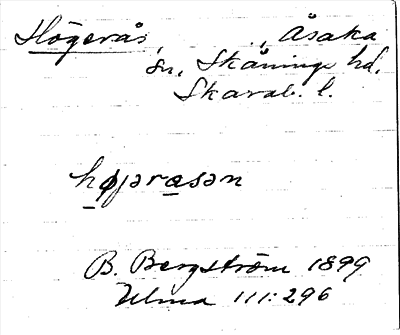 Högerås, Åsaka
sn, Skånings hd.
Skarab. l.
højərasən
B. Bergström 1899
Ulma 111:296